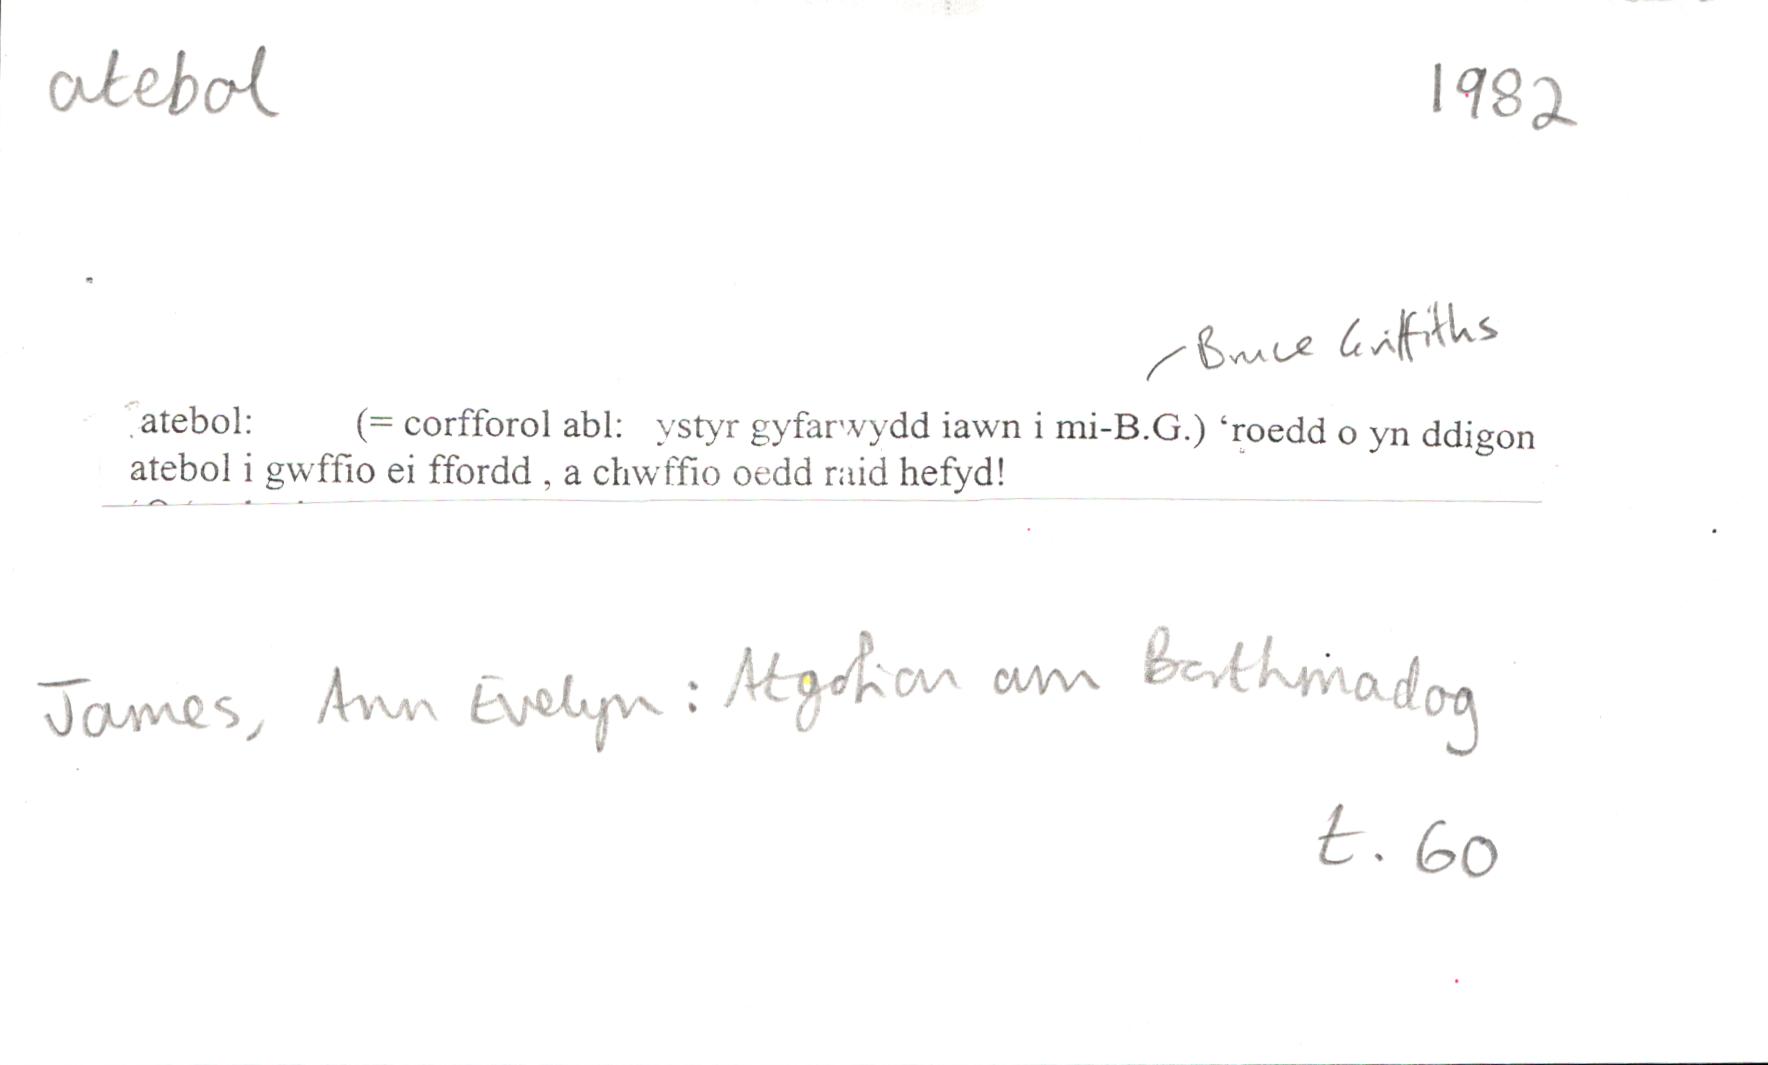 atebol 1982
Bruce Griffiths
atebol: (= corfforol abl: ystyr gyfarwydd iawn i mi-B.G.) ‘roedd o yn ddigon
atebol i gwffio ei ffordd , a chwffio oedd raid hefyd!
James, Ann Evelyn : Atgofion am Borthmadog
t. 60